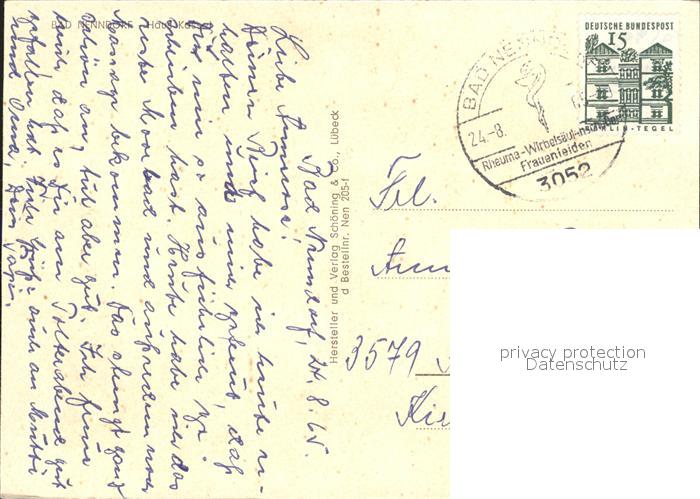 BAD NENNDORF Haus Kassel
Bad Nenndorf, 24.8.65.
Liebe Annerose!
Deinen Brief habe ich heute er-
halten und mich gefreut, daß
Du mir so ausführlich ge-
schrieben hast. Heute habe ich das
erste Moorbad und außerdem noch
Massage bekommen. Das strengt ganz
schön an, tut aber gut. Ich freue
mich, daß es Dir am Polterabend gut
gefallen hat. Viele Grüße auch an Mutti
und Oma, Dein Papi.
Hersteller und Verlag Schöning & Co., Lübeck
d Bestellnr. Nen 205-f
DEUTSCHE BUNDESPOST
15
BERLIN-TEGEL
BAD NENNDORF
24.-8. 65
Rheuma-Wirbelsäul
Frauenleiden
3052
Frl.
Ann
3579
Ki
privacy protection
Datenschutz